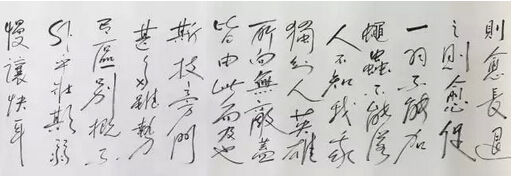 則愈長退
之則愈促
一羽不能加
蠅蟲不能落
人不知我我
獨知人英雄
所向無敵蓋
皆由此而及也
斯技旁門
甚多雖勢
有區別概不
外乎壯欺弱
慢讓快耳